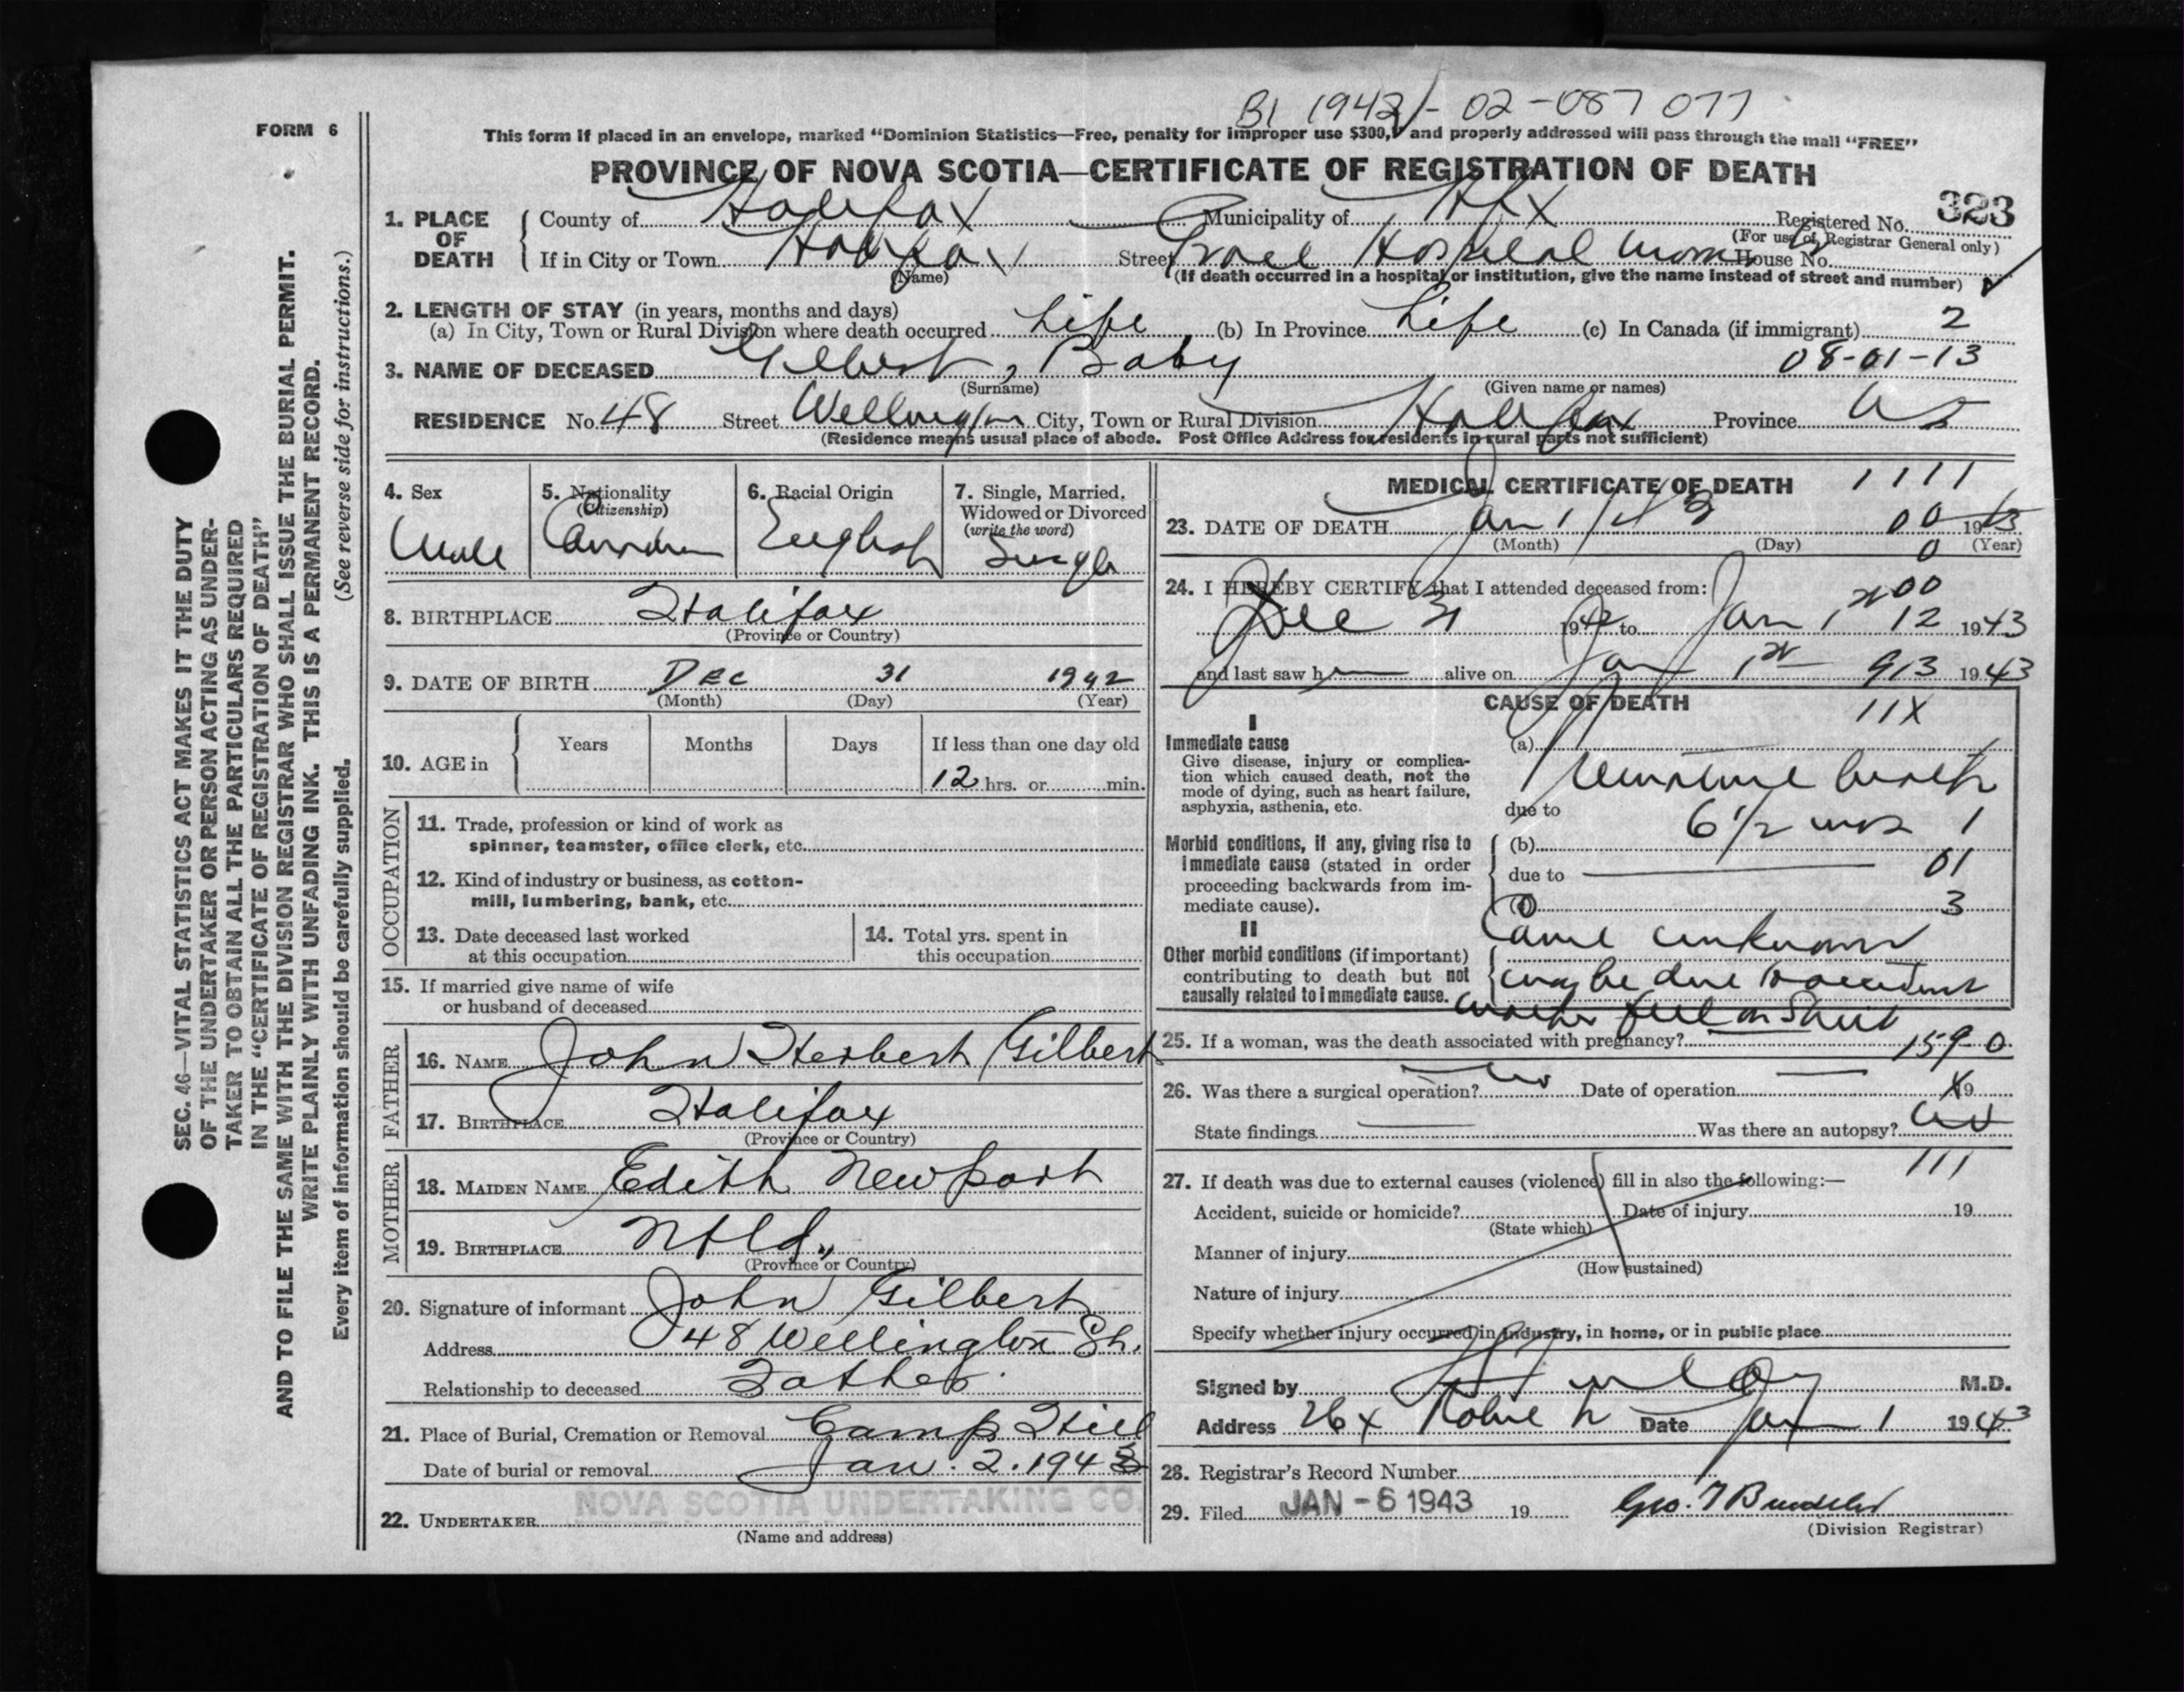 B1 1942 - 02-087077
FORM 6
This form if placed in an envelope, marked “Dominion Statistics—Free, penalty for improper use $300, and properly addressed will pass through the mail “FREE”
PROVINCE OF NOVA SCOTIA—CERTIFICATE OF REGISTRATION OF DEATH
323
1. PLACE OF DEATH
County of Halifax Municipality of Hfx Registered No.
(For use of Registrar General only)
If in City or Town Halifax Street Grace Hospital House No.
(Name) (If death occurred in a hospital or institution, give the name instead of street and number)
2. LENGTH OF STAY (in years, months and days)
(a) In City, Town or Rural Division where death occurred Life (b) In Province Life (c) In Canada (if immigrant) 2
08-01-13
3. NAME OF DECEASED Gilbert, Baby
(Surname) (Given name or names)
RESIDENCE No. 48 Street Wellington City, Town or Rural Division Halifax Province NS
(Residence means usual place of abode. Post Office Address for residents in rural parts not sufficient)
4. Sex Male
5. Nationality (Citizenship) Canadian
6. Racial Origin English
7. Single, Married, Widowed or Divorced (write the word) Single
8. BIRTHPLACE Halifax
(Province or Country)
9. DATE OF BIRTH Dec 31 1942
(Month) (Day) (Year)
10. AGE in Years Months Days If less than one day old
12 hrs. or min.
OCCUPATION
11. Trade, profession or kind of work as
spinner, teamster, office clerk, etc.
12. Kind of industry or business, as cotton-
mill, lumbering, bank, etc.
13. Date deceased last worked
at this occupation
14. Total yrs. spent in
this occupation
15. If married give name of wife
or husband of deceased
FATHER
16. NAME John Herbert Gilbert
17. BIRTHPLACE Halifax
(Province or Country)
MOTHER
18. MAIDEN NAME Edith Newport
19. BIRTHPLACE Nfld.,
(Province or Country)
20. Signature of informant John Gilbert
Address 48 Wellington St.
Relationship to deceased Father
21. Place of Burial, Cremation or Removal Camp Hill
Date of burial or removal Jan. 2. 1943
NOVA SCOTIA UNDERTAKING CO.
22. UNDERTAKER
(Name and address)
MEDICAL CERTIFICATE OF DEATH 1111
23. DATE OF DEATH Jan 1 / 43 00 1943
(Month) (Day) (Year)
0
24. I HEREBY CERTIFY that I attended deceased from: 00
Dec 31 1942 to Jan 1 12 1943
and last saw h alive on Jan 1st 913 1943
CAUSE OF DEATH
11X
I
Immediate cause
Give disease, injury or complica-
tion which caused death, not the
mode of dying, such as heart failure,
asphyxia, asthenia, etc.
(a)
Premature birth
due to
6 1/2 mos 1
Morbid conditions, if any, giving rise to
immediate cause (stated in order
proceeding backwards from im-
mediate cause).
(b)
due to 01
(c) 3
II
Other morbid conditions (if important)
contributing to death but not
causally related to immediate cause.
Cause unknown
may be due to accident
mother fell on Street
25. If a woman, was the death associated with pregnancy? 159 0
26. Was there a surgical operation? No Date of operation 19
State findings Was there an autopsy? No
111
27. If death was due to external causes (violence) fill in also the following:—
Accident, suicide or homicide? Date of injury 19
(State which)
Manner of injury
(How sustained)
Nature of injury
Specify whether injury occurred in industry, in home, or in public place
Signed by M.D.
Address Robie Date Jan 1 1943
28. Registrar's Record Number
29. Filed JAN - 6 1943 19
(Division Registrar)
SEC. 46—VITAL STATISTICS ACT MAKES IT THE DUTY
OF THE UNDERTAKER OR PERSON ACTING AS UNDER-
TAKER TO OBTAIN ALL THE PARTICULARS REQUIRED
IN THE “CERTIFICATE OF REGISTRATION OF DEATH”
AND TO FILE THE SAME WITH THE DIVISION REGISTRAR WHO SHALL ISSUE THE BURIAL PERMIT.
WRITE PLAINLY WITH UNFADING INK. THIS IS A PERMANENT RECORD.
Every item of information should be carefully supplied. (See reverse side for instructions.)